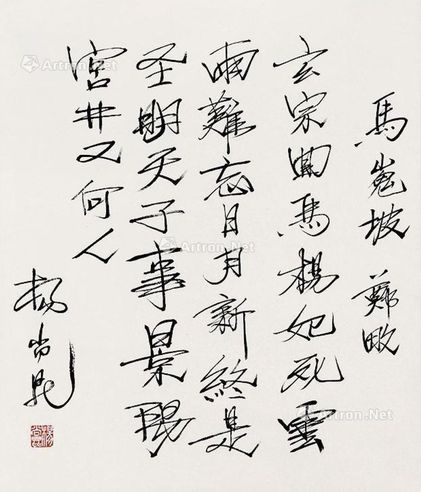 馬嵬坡 鄭畋
玄宗回馬楊妃死雲
雨難忘日月新終是
圣明天子事景陽
宮井又何人
杨尚昆
Artron.Net
Artron.Net
Artron.Net
Artron.Net